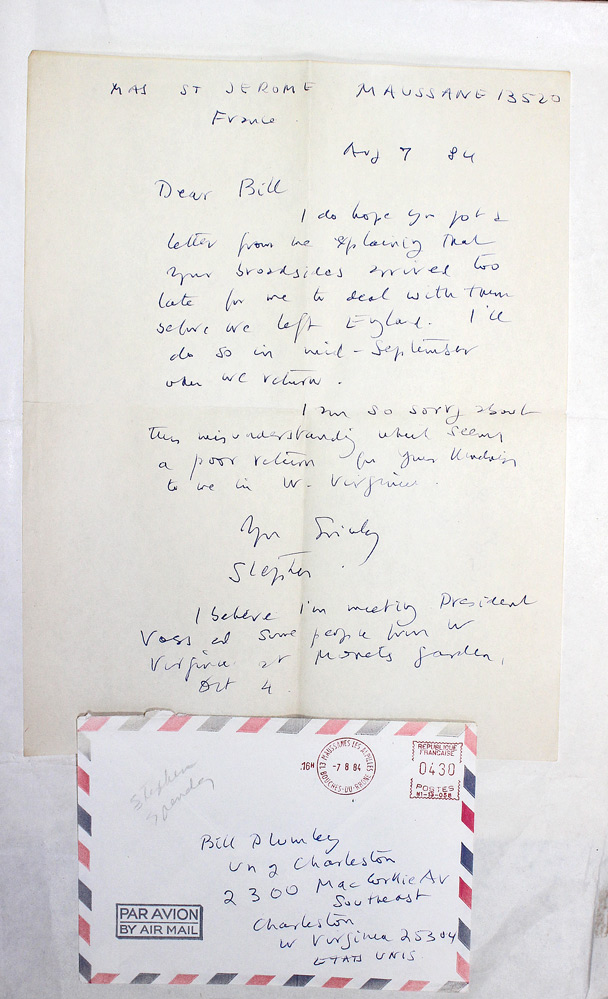 MAS ST JEROME MAUSSANE 13520
France
Aug 7 84
Dear Bill
I do hope you got a
letter from me explaining that
your broadsides arrived too
late for me to deal with them
before we left England. I'll
do so in mid-September
when we return.
I am so sorry about
this misunderstanding which seems
a poor return for your kindness
to me in W. Virginia.
Yrs Sincerely
Stephen.
I believe I'm meeting President
Voss and some people from W
Virginia at Monets garden,
Oct 4.
Stephen
Spender
16H
13 MAUSSANE LES ALPILLES
-7 8 84
BOUCHES-DU-RHONE
REPUBLIQUE
FRANCAISE
0430
POSTES
Bill Plumley
Un of Charleston
2300 MacCorkle Av
Southeast
Charleston
W Virginia 25304
ETATS UNIS
PAR AVION
BY AIR MAIL